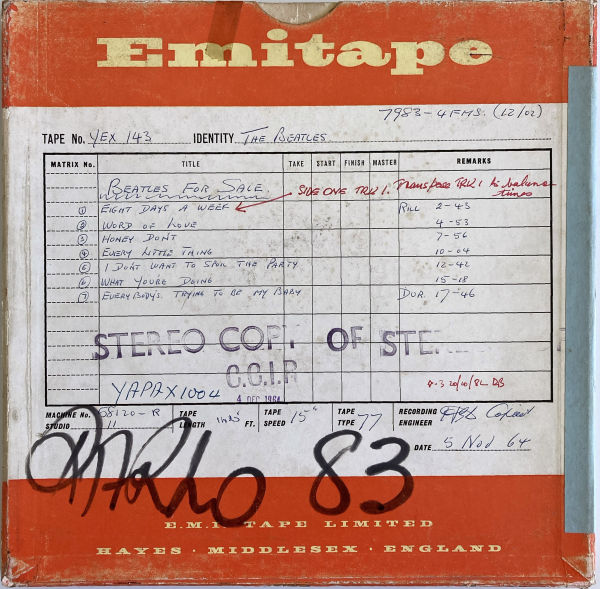 Emitape
7983-4FMS. (L2/02)
TAPE No. YEX 143 IDENTITY THE BEATLES
MATRIX No. TITLE TAKE START FINISH MASTER REMARKS
BEATLES FOR SALE. SIDE ONE TRK 1. Transpose TRK 1 to balance
times
1 EIGHT DAYS A WEEK RILL 2-43
2 WORD OF LOVE 4-53
3 HONEY DON'T 7-56
4 EVERY LITTLE THING 10-04
5 I DON'T WANT TO SPOIL THE PARTY 12-42
6 WHAT YOU'RE DOING 15-18
7 EVERYBODY'S TRYING TO BE MY BABY DUR. 17-46
STEREO COPY OF STE
C.C.I.R
4 DEC 1964
YAPAX1004
20/10/82
MACHINE No. TAPE TAPE 15" TAPE 77 RECORDING
STUDIO 11 LENGTH FT. SPEED TYPE ENGINEER
DATE 5 Nov 64
83
E.M.I TAPE LIMITED
HAYES · MIDDLESEX · ENGLAND